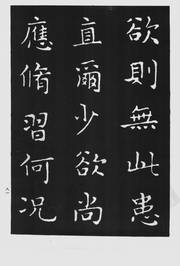 欲則無此患
直爾少欲尚
應脩習何況